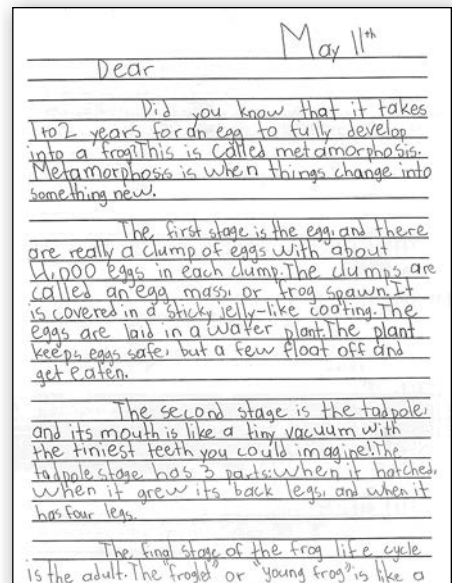 May 11th
Dear
Did you know that it takes
1 to 2 years for an egg to fully develop
into a frog? This is called metamorphosis.
Metamorphosis is when things change into
something new.
The first stage is the egg, and there
are really a clump of eggs with about
4,000 eggs in each clump. The clumps are
called an egg mass, or frog spawn. It
is covered in a sticky jelly-like coating. The
eggs are laid in a water plant. The plant
keeps eggs safe, but a few float off and
get eaten.
The second stage is the tadpole,
and its mouth is like a tiny vacuum with
the tiniest teeth you could imagine! The
tadpole stage has 3 parts: when it hatched,
when it grew its back legs, and when it
has four legs.
The final stage of the frog life cycle
is the adult. The "froglet" or "young frog" is like a